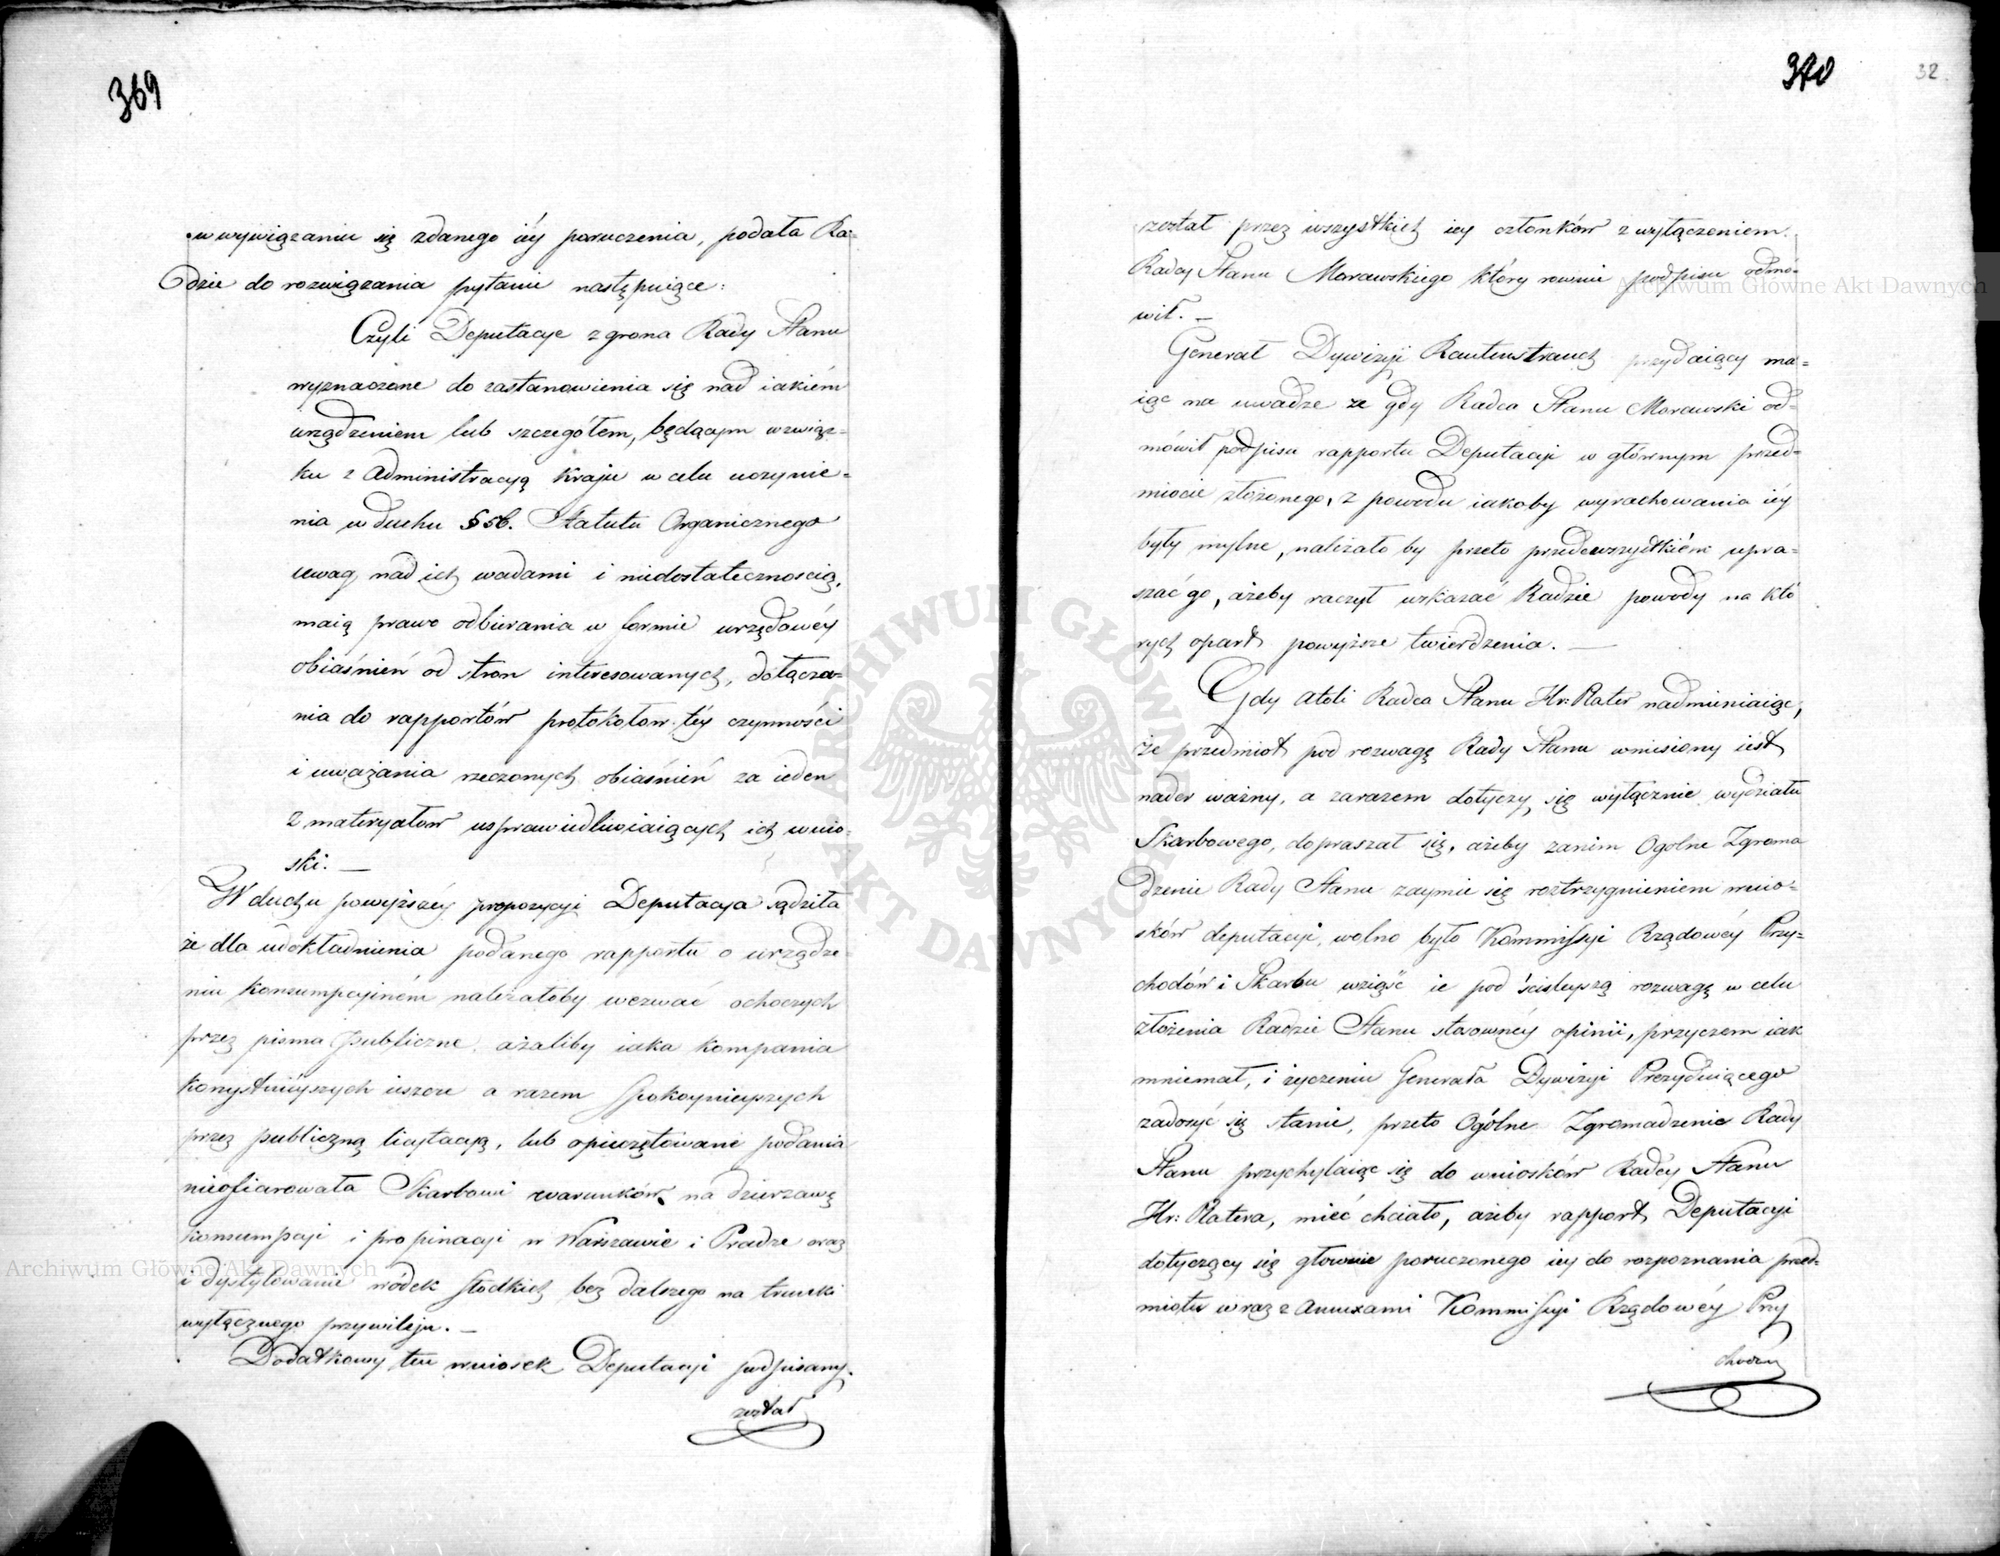 369
w wywiązaniu się zdanego iéy poruczenia, podała Ra=
dzie do rozwiązania pytanie następuiące:
Czyli Deputacye z grona Rady Stanu
wyznaczone do zastanowienia się nad iakiém
urządzeniem lub szczegółem, będącym w związ=
ku z Administracyą Kraju w celu uczynie=
nia w duchu § 56. Statutu Organicznego
uwag nad ich wadami i niedostatecznością,
maią prawo odbierania w formie urzędowéy
obiaśnień od stron interesowanych, dołącza=
nia do rapportów protokołow téy czynności
i uważania rzeczonych obiaśnień za ieden
z materyałow usprawiedliwiaiących ich wnio=
ski. —
W duchu powyższéy propozycyi Deputacya sądziła
że dla udokładnienia podanego rapportu o urządze=
niu konsumpcyiném należałoby wezwać ochoczych
przez pisma publiczne, ażaliby iaka kompania
korzystniéyszych ieszcze a razem spokoynieyszych
przez publiczną licytacyą, lub opieczętowane podania
nieofiarowała Skarbowi warunków na dzierzawę
konsumpcyi i propinacyi w Warszawie i Pradze oraz
i dystylowanie wódek słodkich bez dalszego na trunki
wyłącznego przywileju. —
Dodatkowy ten wniosek Deputacyi podpisany
został
370
32
został przez wszystkich iey członków z wyłączeniem
Radcy Stanu Morawskiego który rownie podpisu odmó=
wił. —
Generał Dywizyi Rautenstrauch przydaiący ma=
iąc na uwadze że gdy Radca Stanu Morawski od=
mówił podpisu rapportu Deputacyi w głównym przed=
miocie złożonego, z powodu iakoby wyrachowania iéy
były mylne, należało by przeto przedewszystkiém upra=
szać go, ażeby raczył wskazać Radzie powody na któ
rych oparł powyższe twierdzenia. —
Gdy atoli Radca Stanu Hr: Plater nadmieniaiąc,
że przedmiot pod rozwagę Rady Stanu wniesiony iest
nader ważny, a zarazem dotyczy się wyłącznie wydziału
Skarbowego, dopraszał się, ażeby zanim Ogolne Zgroma
dzenie Rady Stanu zaymie się roztrzygnieniem wnio=
sków deputacyi, wolno było Kommissyi Rządowéy Przy=
chodów i Skarbu wziąść ie pod ściśleyszą rozwagę w celu
złożenia Radzie Stanu stosownéy opinii, przyczem iak
mniemał, i życzeniu Generała Dywizyi Prezyduiącego
zadosyć się stanie, przeto Ogólne Zgromadzenie Rady
Stanu przychylaiąc się do wniosków Radcy Stanu
Hr: Platera, mieć chciało, ażeby rapport Deputacyi
dotyczący się głownie poruczonego iey do rozpoznania przed=
miotu wraz z Annexami Kommissyi Rządowéy Przy
chodów
Archiwum Główne Akt Dawnych
Archiwum Główne Akt Dawnych
ARCHIWUM GŁÓWNE AKT DAWNYCH